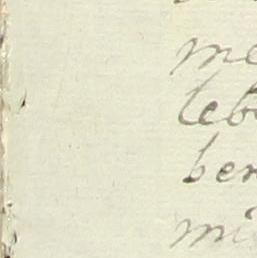 me
leb
ber
mi